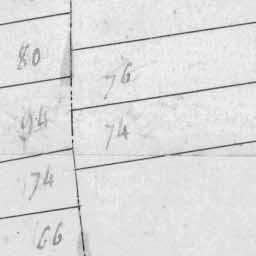 80
76
94
74
74
66